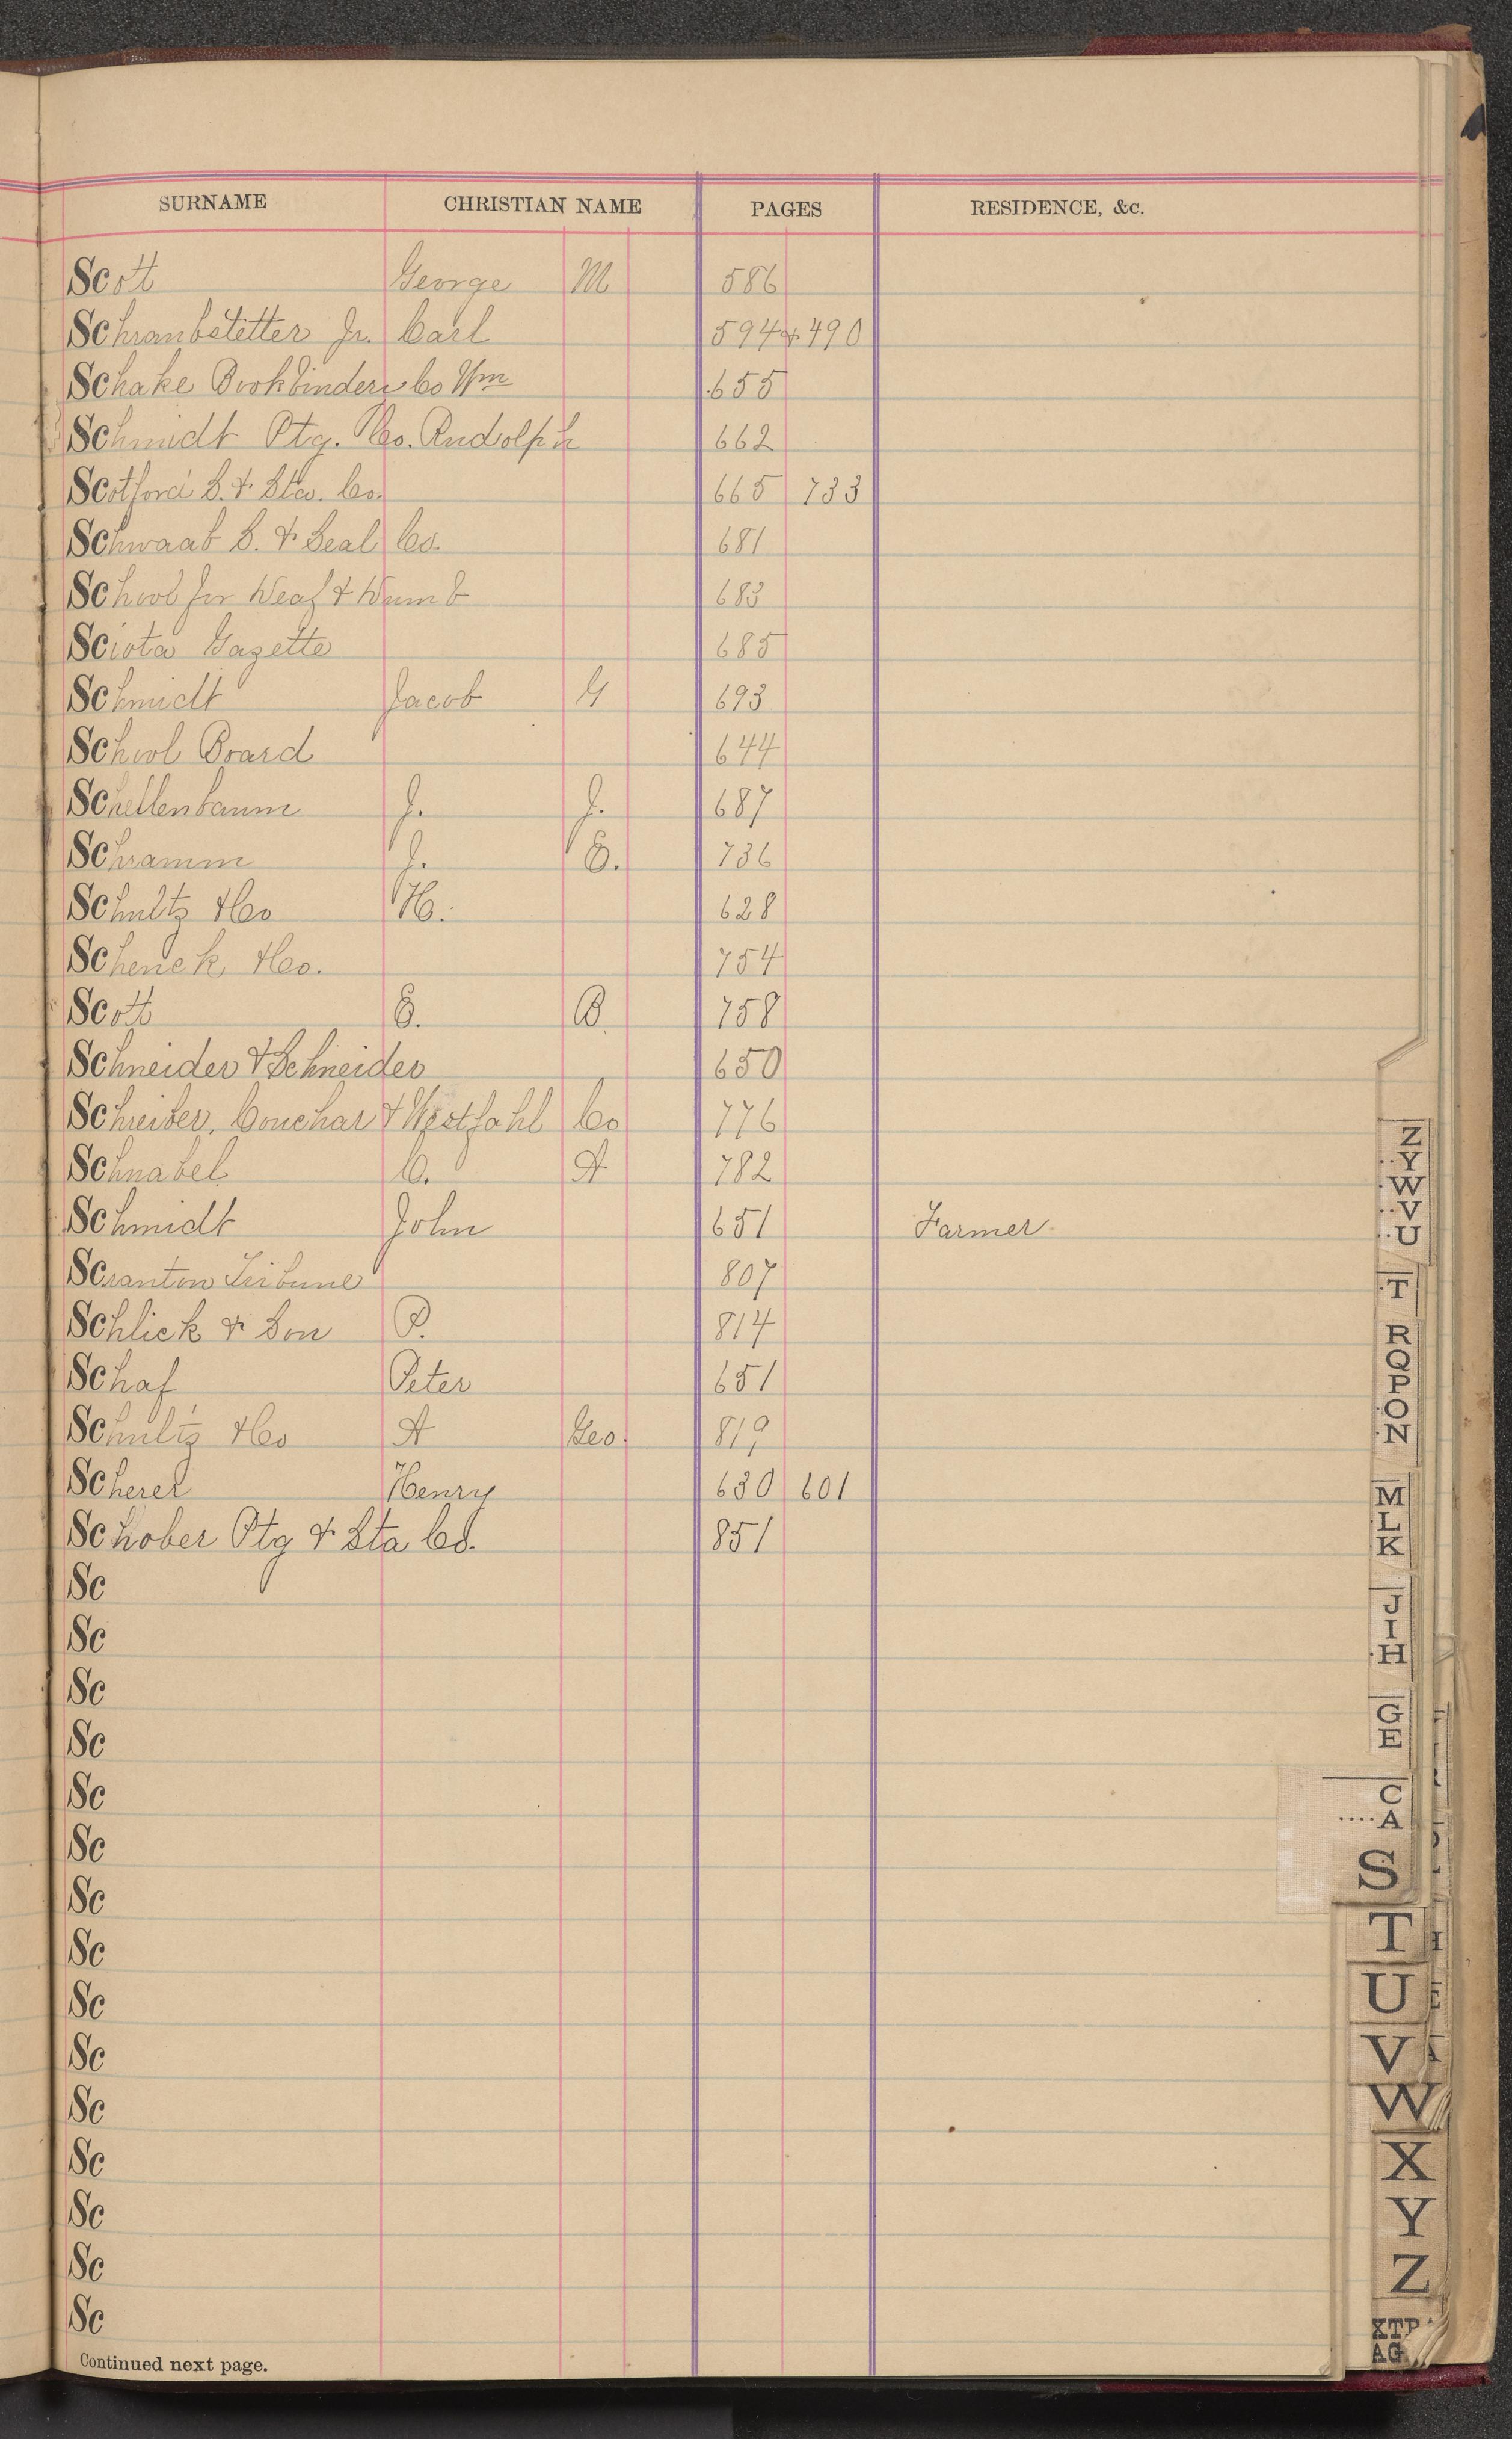 SURNAME CHRISTIAN NAME PAGES RESIDENCE, &c.
Scott George M 586
Schranbstetter Jr. Carl 594 & 490
Schake Bookbinders Co Wm 655
Schmidt Ptg. Co. Rudolph 662
Scotford S. & Sta. Co. 665 733
Schwaab S. & Seal Co. 681
School for Deaf & Dumb 683
Sciota Gazette 685
Schmidt Jacob G 693
School Board 644
Schellenbaum J. J. 687
Schramm J. E. 736
Schultz & Co H. 628
Schenck & Co. 754
Scott E. B. 758
Schneider & Schneider 650
Schreiber, Conchar & Westfahl Co 776
Schnabel C. A 782
Schmidt John 651 Farmer
Scranton Tribune 807
Schlick & Son P. 814
Schaf Peter 651
Schultz & Co A Geo. 819
Scherer Henry 630 601
Schober Ptg & Sta Co. 851
Sc
Sc
Sc
Sc
Sc
Sc
Sc
Sc
Sc
Sc
Sc
Sc
Sc
Sc
Sc
Continued next page.
Z
Y
W
V
U
T
R
Q
P
O
N
M
L
K
J
I
H
G
E
C
A
S
T
U
V
W
X
Y
Z
XTP
AG